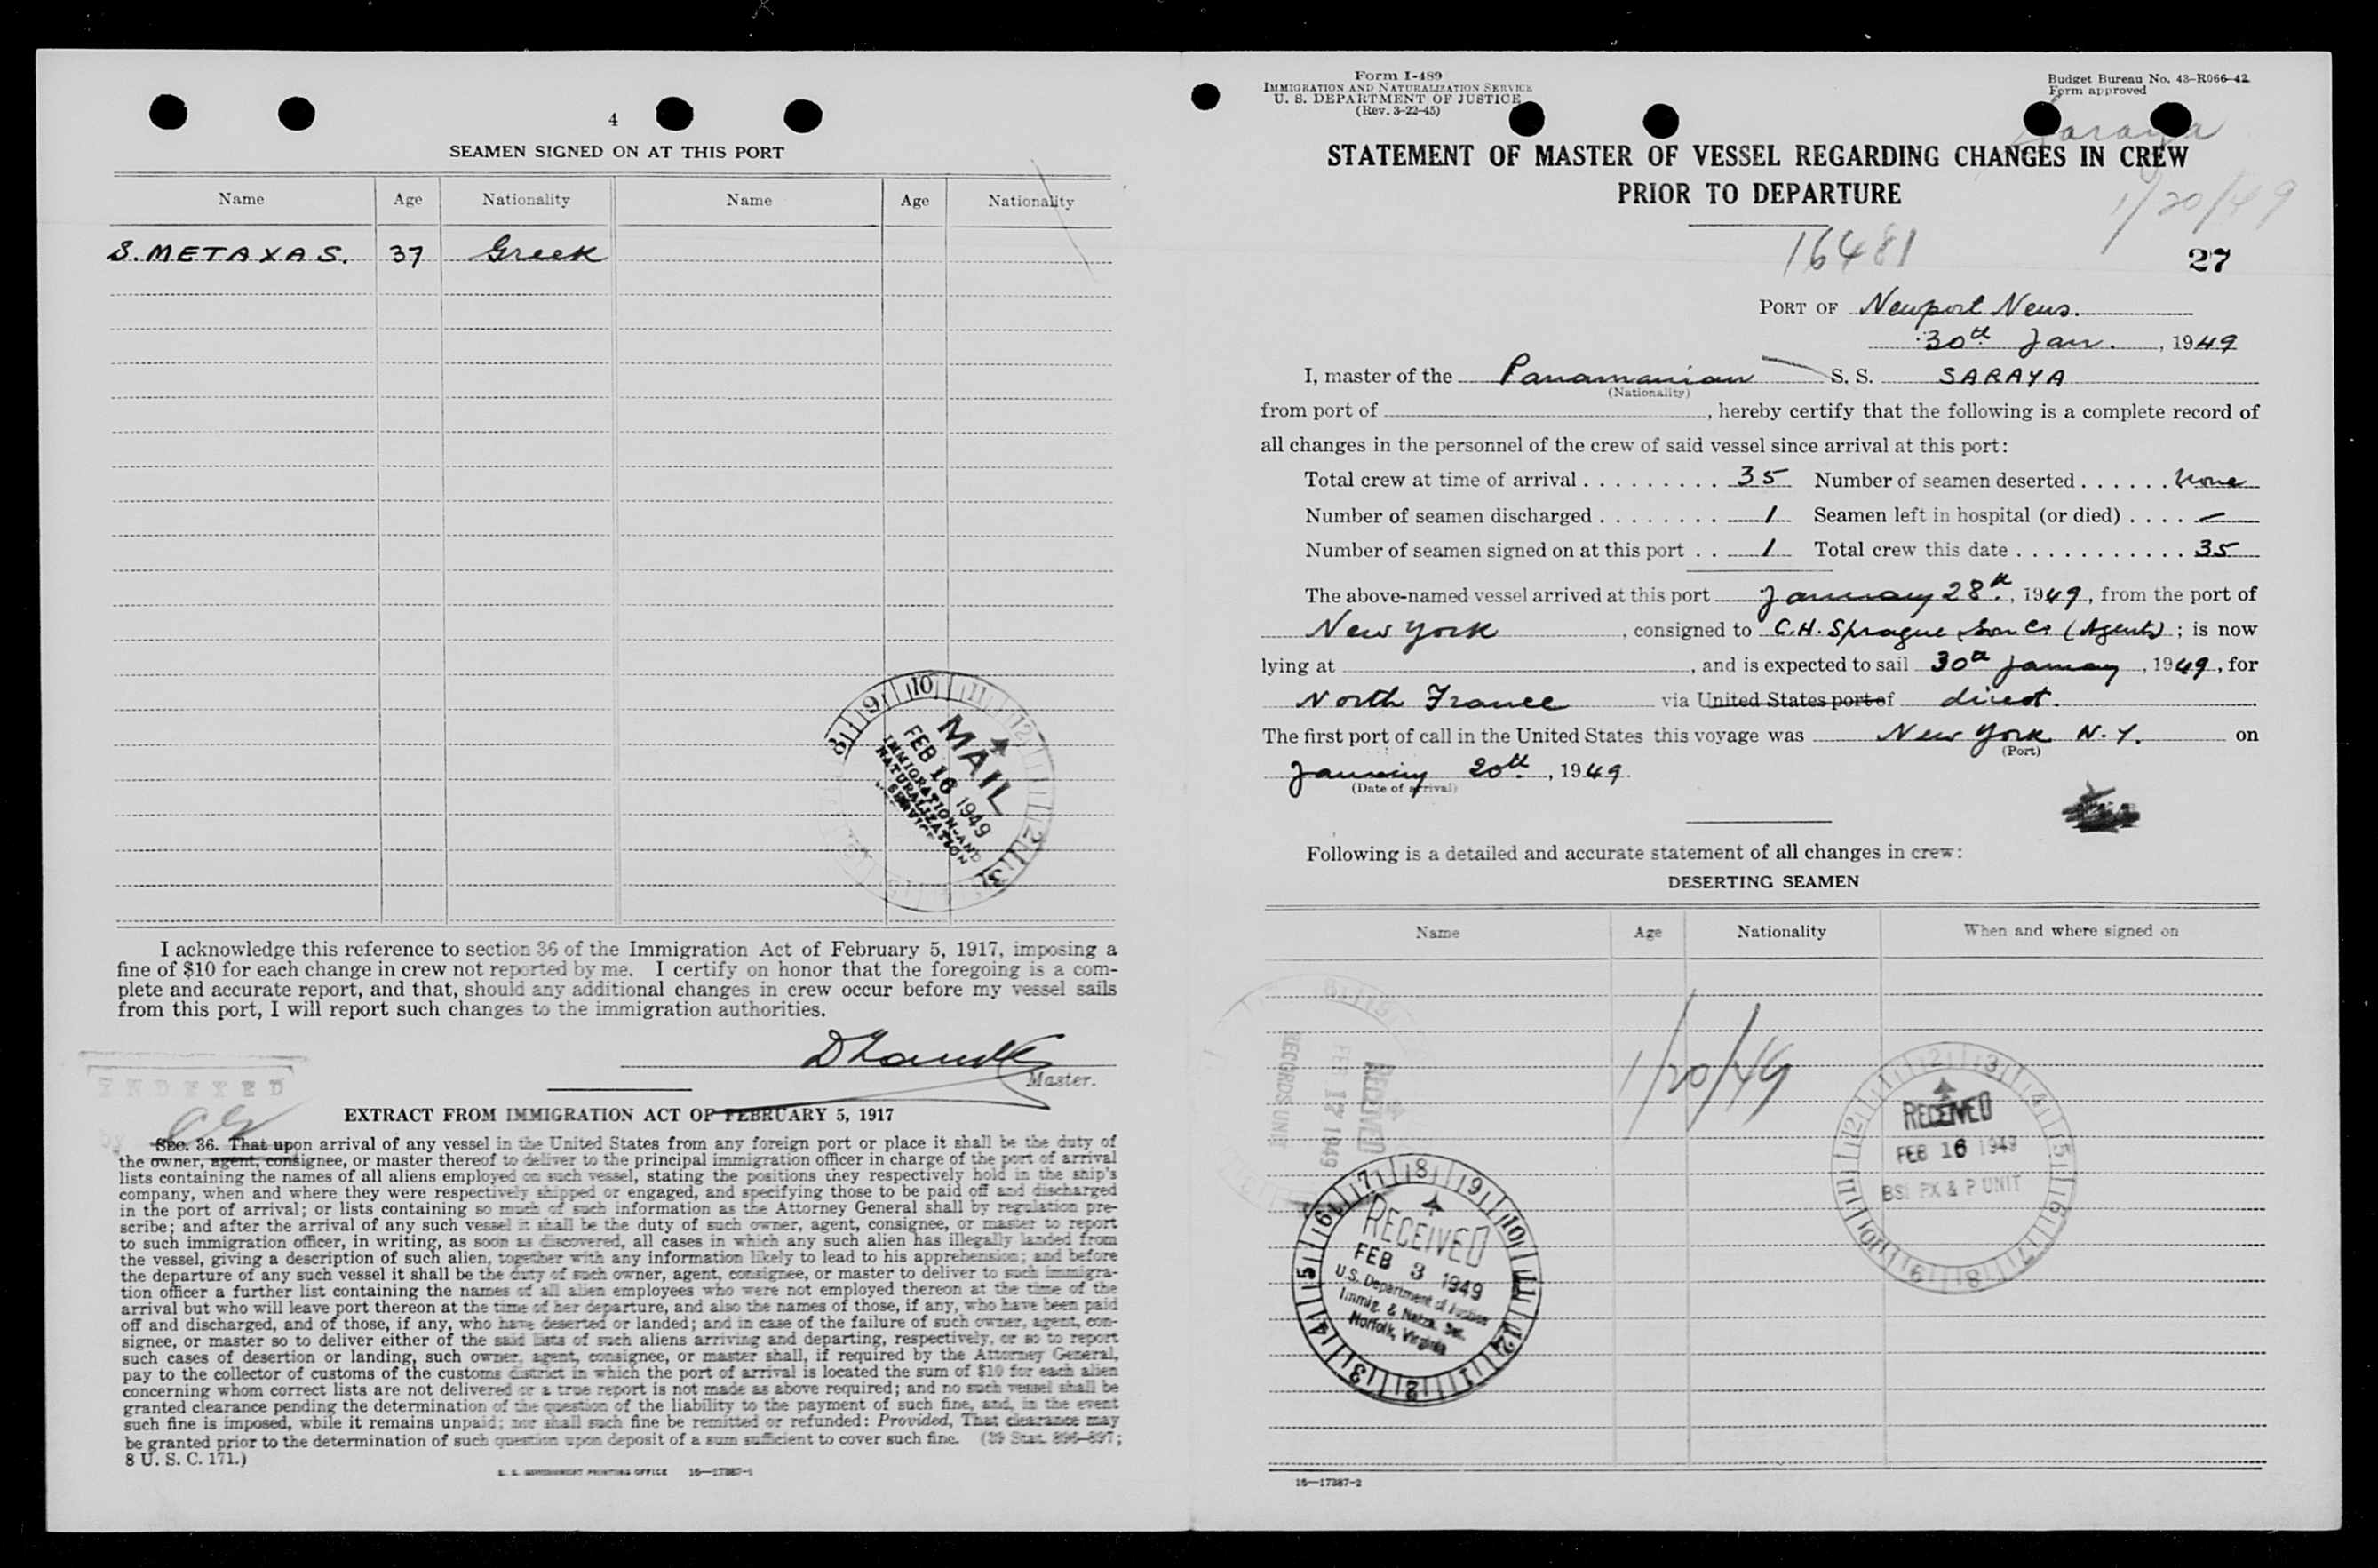 4
SEAMEN SIGNED ON AT THIS PORT
Name Age Nationality Name Age Nationality
S. METAXAS. 37 Greek
10 11 12
MAIL
FEB 16 1949
IMMIGRATION AND
NATURALIZATION
SERVICE
I acknowledge this reference to section 36 of the Immigration Act of February 5, 1917, imposing a
fine of $10 for each change in crew not reported by me. I certify on honor that the foregoing is a com-
plete and accurate report, and that, should any additional changes in crew occur before my vessel sails
from this port, I will report such changes to the immigration authorities.
Master.
INDEXED
EXTRACT FROM IMMIGRATION ACT OF FEBRUARY 5, 1917
SEC. 36. That upon arrival of any vessel in the United States from any foreign port or place it shall be the duty of
the owner, agent, consignee, or master thereof to deliver to the principal immigration officer in charge of the port of arrival
lists containing the names of all aliens employed on such vessel, stating the positions they respectively hold in the ship's
company, when and where they were respectively shipped or engaged, and specifying those to be paid off and discharged
in the port of arrival; or lists containing so much of such information as the Attorney General shall by regulation pre-
scribe; and after the arrival of any such vessel it shall be the duty of such owner, agent, consignee, or master to report
to such immigration officer, in writing, as soon as discovered, all cases in which any such alien has illegally landed from
the vessel, giving a description of such alien, together with any information likely to lead to his apprehension; and before
the departure of any such vessel it shall be the duty of such owner, agent, consignee, or master to deliver to such immigra-
tion officer a further list containing the names of all alien employees who were not employed thereon at the time of the
arrival but who will leave port thereon at the time of her departure, and also the names of those, if any, who have been paid
off and discharged, and of those, if any, who have deserted or landed; and in case of the failure of such owner, agent, con-
signee, or master so to deliver either of the said lists of such aliens arriving and departing, respectively, or so to report
such cases of desertion or landing, such owner, agent, consignee, or master shall, if required by the Attorney General,
pay to the collector of customs of the customs district in which the port of arrival is located the sum of $10 for each alien
concerning whom correct lists are not delivered or a true report is not made as above required; and no such vessel shall be
granted clearance pending the determination of the question of the liability to the payment of such fine, and, in the event
such fine is imposed, while it remains unpaid; nor shall such fine be remitted or refunded: Provided, That clearance may
be granted prior to the determination of such question upon deposit of a sum sufficient to cover such fine. (39 Stat. 896–897;
8 U. S. C. 171.)
U. S. GOVERNMENT PRINTING OFFICE 16—17387-1
Form I-489
IMMIGRATION AND NATURALIZATION SERVICE
U. S. DEPARTMENT OF JUSTICE
(Rev. 3-22-45)
Budget Bureau No. 43-R066-42
Form approved
Saraya
STATEMENT OF MASTER OF VESSEL REGARDING CHANGES IN CREW
PRIOR TO DEPARTURE
1/20/49
16481
27
PORT OF Newport News.
30th Jan. , 1949
I, master of the Panamanian S. S. SARAYA
(Nationality)
from port of , hereby certify that the following is a complete record of
all changes in the personnel of the crew of said vessel since arrival at this port:
Total crew at time of arrival . . . . . . . . . 35 Number of seamen deserted . . . . . . None
Number of seamen discharged . . . . . . . . 1 Seamen left in hospital (or died) . . . . —
Number of seamen signed on at this port . . 1 Total crew this date . . . . . . . . . . . 35
The above-named vessel arrived at this port January 28th, 1949, from the port of
New York , consigned to C.H. Sprague & Son Co (Agents) ; is now
lying at , and is expected to sail 30th January , 1949, for
North France via United States port of direct.
The first port of call in the United States this voyage was New York N.Y. on
(Port)
January 20th , 1949.
(Date of arrival)
Following is a detailed and accurate statement of all changes in crew:
DESERTING SEAMEN
Name Age Nationality When and where signed on
1/20/49
RECEIVED
FEB 17 1949
RECORDS UNIT
RECEIVED
FEB 16 1949
BSI PX & P UNIT
RECEIVED
FEB 3 1949
U.S. Department of Justice
Immig. & Natrz. Ser.
Norfolk, Virginia
16—17387-2